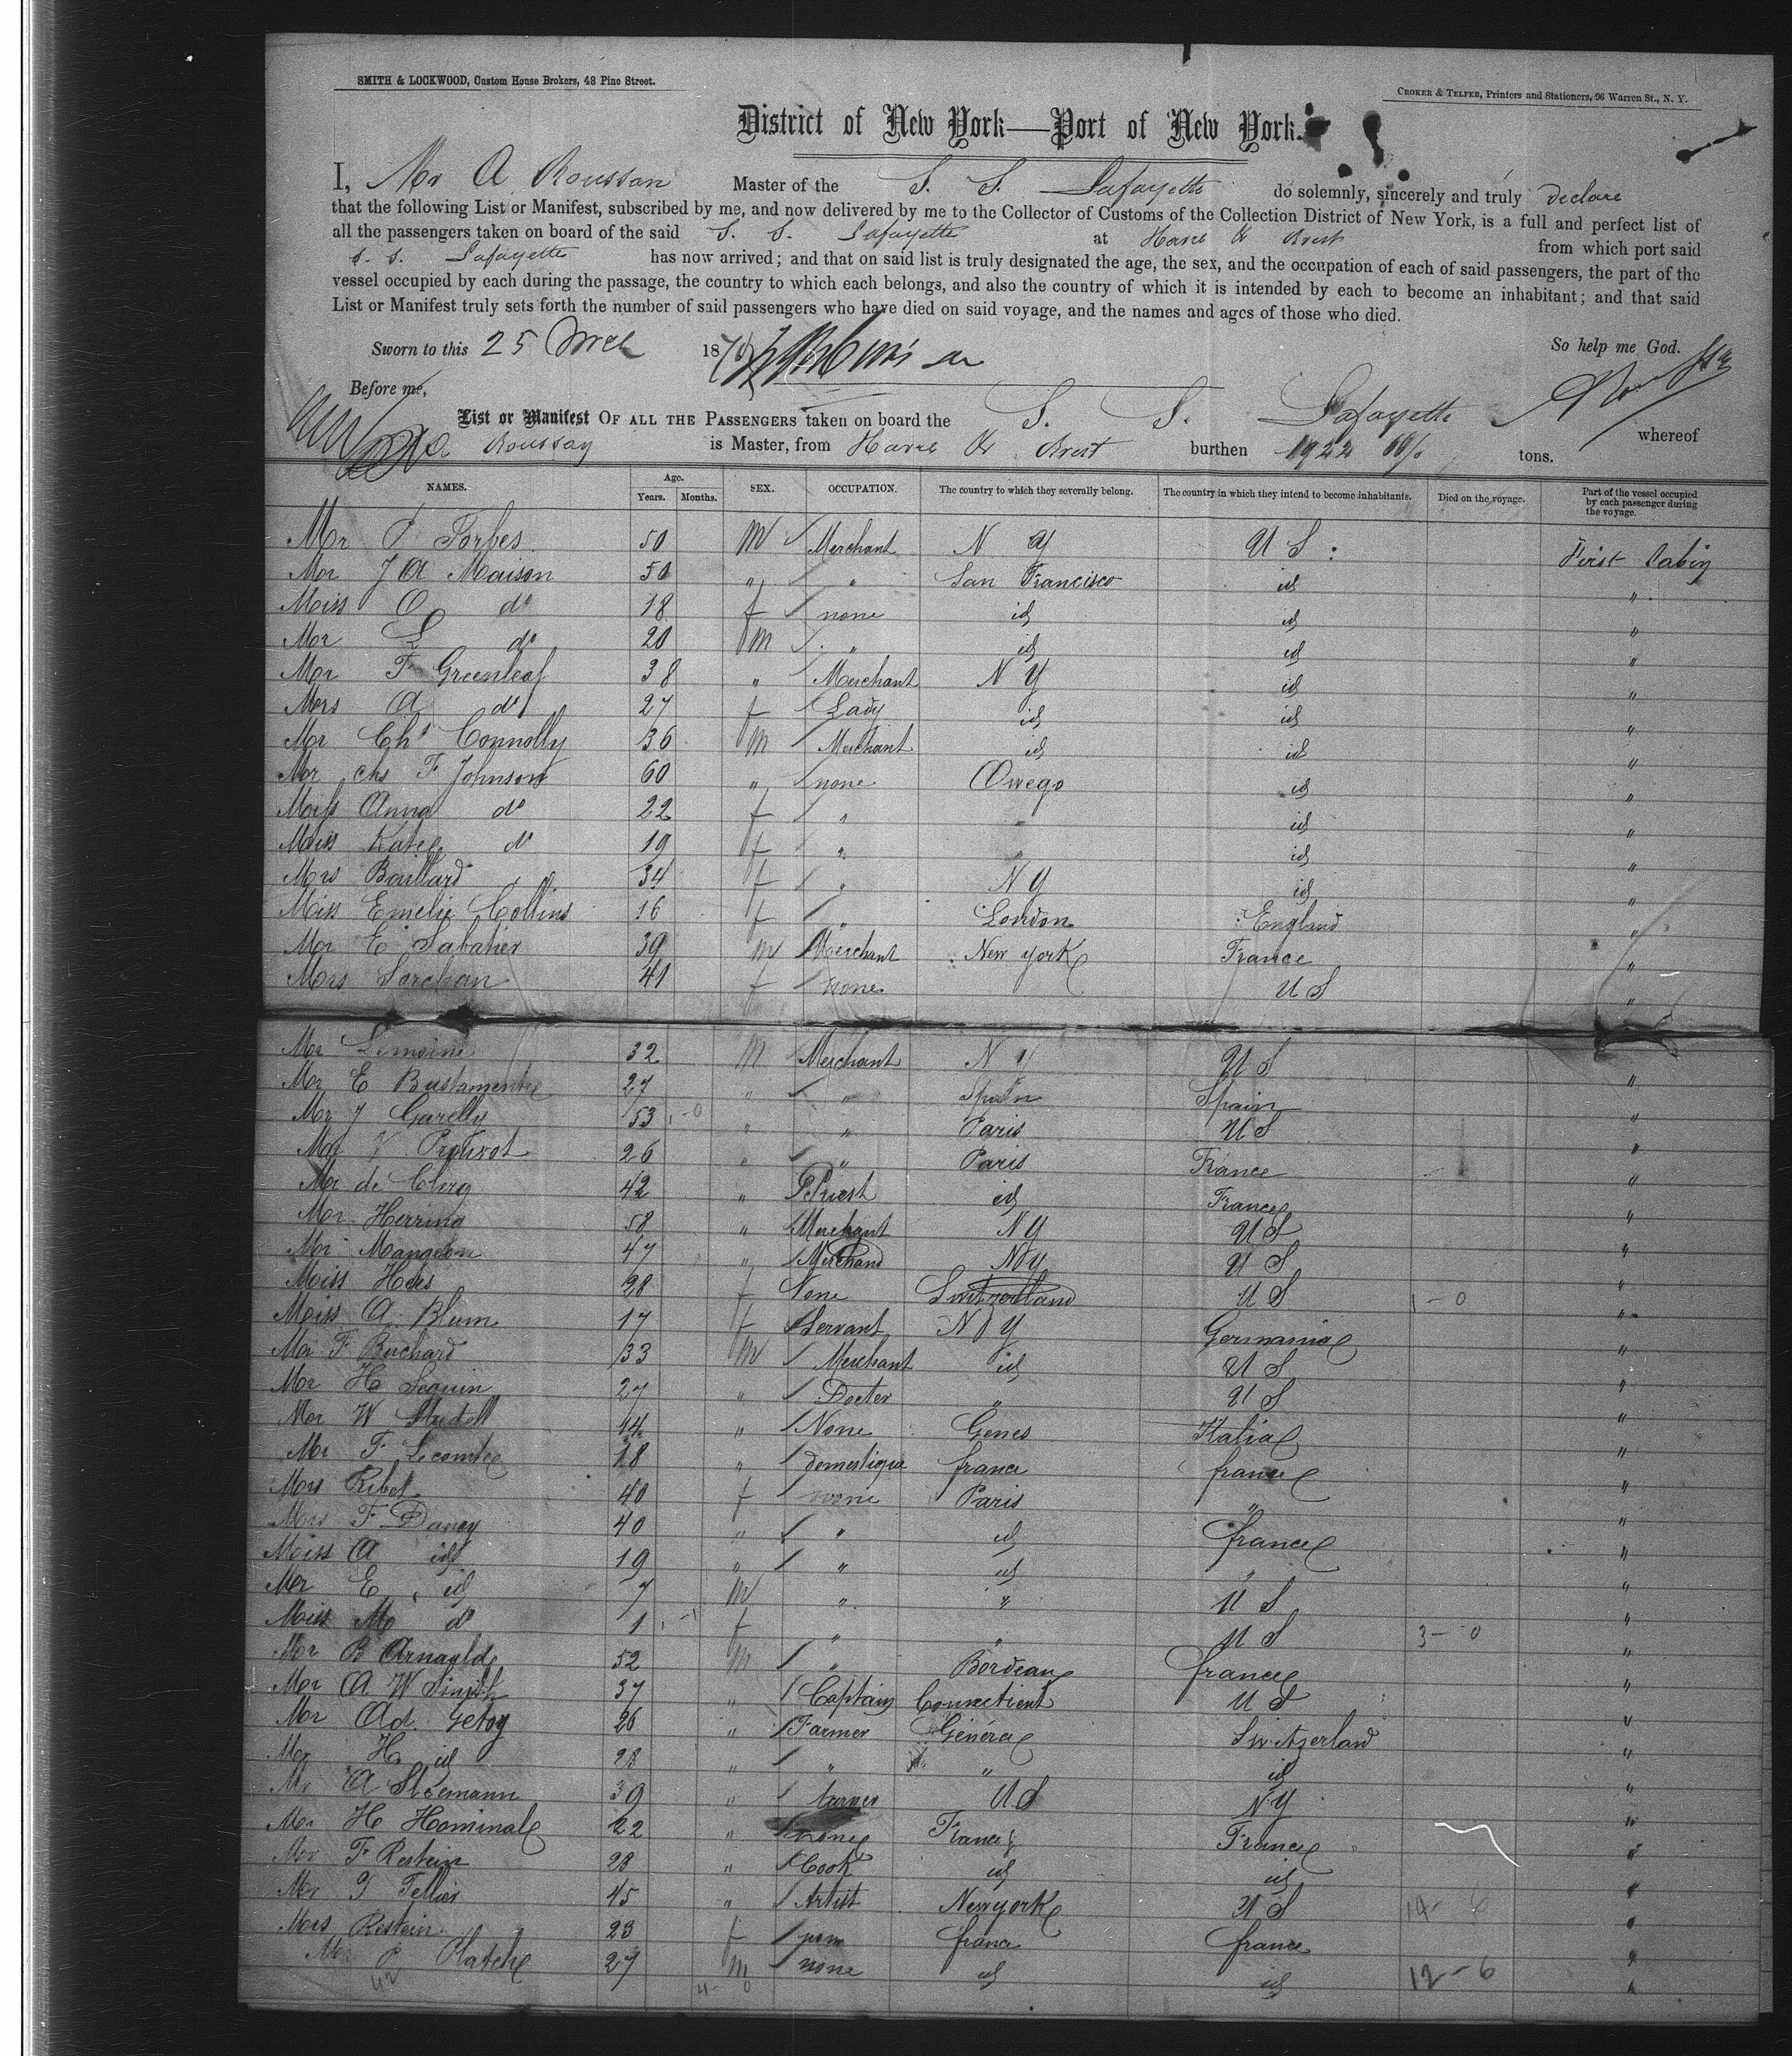 SMITH & LOCKWOOD, Custom House Brokers, 48 Pine Street.
CROKER & TELFER, Printers and Stationers, 96 Warren St., N. Y.
District of New York—Port of New York.
I, Mr A Roussan Master of the S. S. Lafayette do solemnly, sincerely and truly declare
that the following List or Manifest, subscribed by me, and now delivered by me to the Collector of Customs of the Collection District of New York, is a full and perfect list of
all the passengers taken on board of the said S. S. Lafayette at Havre & Brest from which port said
S. S. Lafayette has now arrived; and that on said list is truly designated the age, the sex, and the occupation of each of said passengers, the part of the
vessel occupied by each during the passage, the country to which each belongs, and also the country of which it is intended by each to become an inhabitant; and that said
List or Manifest truly sets forth the number of said passengers who have died on said voyage, and the names and ages of those who died.
Sworn to this 25 187 So help me God.
Before me,
List or Manifest OF ALL THE PASSENGERS taken on board the S. S. Lafayette whereof
A Roussan is Master, from Havre & Brest burthen 1922 tons.
NAMES. Age. Years. Months. SEX. OCCUPATION. The country to which they severally belong. The country in which they intend to become inhabitants. Died on the voyage. Part of the vessel occupied by each passenger during the voyage.
Mr P Forbes 50 M Merchant N Y U S First Cabin
Mr J A Maison 50 " " San Francisco id "
Miss O do 18 f none id id "
Mr L do 20 M " id id "
Mr F Greenleaf 38 " Merchant N Y id "
Mrs A do 27 f Lady id id "
Mr Chs Connolly 36 M Merchant id id "
Mr chs F Johnson 60 " none Owego id "
Miss Anna do 22 f " " id "
Miss Kate do 19 f " " id "
Mrs Bouillard 34 f " N Y id "
Miss Emelie Collins 16 f " London England "
Mr E Sabatier 39 M Merchant New york France "
Mrs Sorchan 41 f none U S "
Mr Lemoine 32 M Merchant N Y U S "
Mr E Bustamente 27 " " Spain Spain "
Mr J Garelly 53 " " Paris U S "
Mr V 26 " " Paris France "
Mr de Clerq 42 " Priest id France "
Mr Herring 58 " Merchant N Y U S "
Mr Mangeon 47 " Merchand N Y U S "
Miss 28 f None Switzerland U S 1-0 "
Miss A Blum 17 f Servant N Y Germania "
Mr F Buchard 33 M Merchant id U S "
Mr H Seguin 27 " Docter " U S "
Mr W 14 " None Genes Italia "
Mr F Lecomte 18 " domestique france france "
Mrs Ribet 40 f none Paris " "
Mrs F Dancy 40 " " id france "
Miss A id 19 " " id " "
Mr E id 7 M " " U S "
Miss M do 1 f " " U S 3-0 "
Mr B Arnauld 52 M " Bordeaux france "
Mr A W Smith 37 " Captain Connectient U S "
Mr Ad. Getoy 26 " Farmer Généra Switzerland "
Mr H id 28 " " " id "
Mr A 39 " U S N Y "
Mr H Hominal 22 " none France France "
Mr F Restein 28 " Cook id id "
Mr J Tellier 45 " Artist New york U S 14- "
Mrs Restein 23 f none france france "
Mr P 27 M none id id 12-6 "
42 4-0